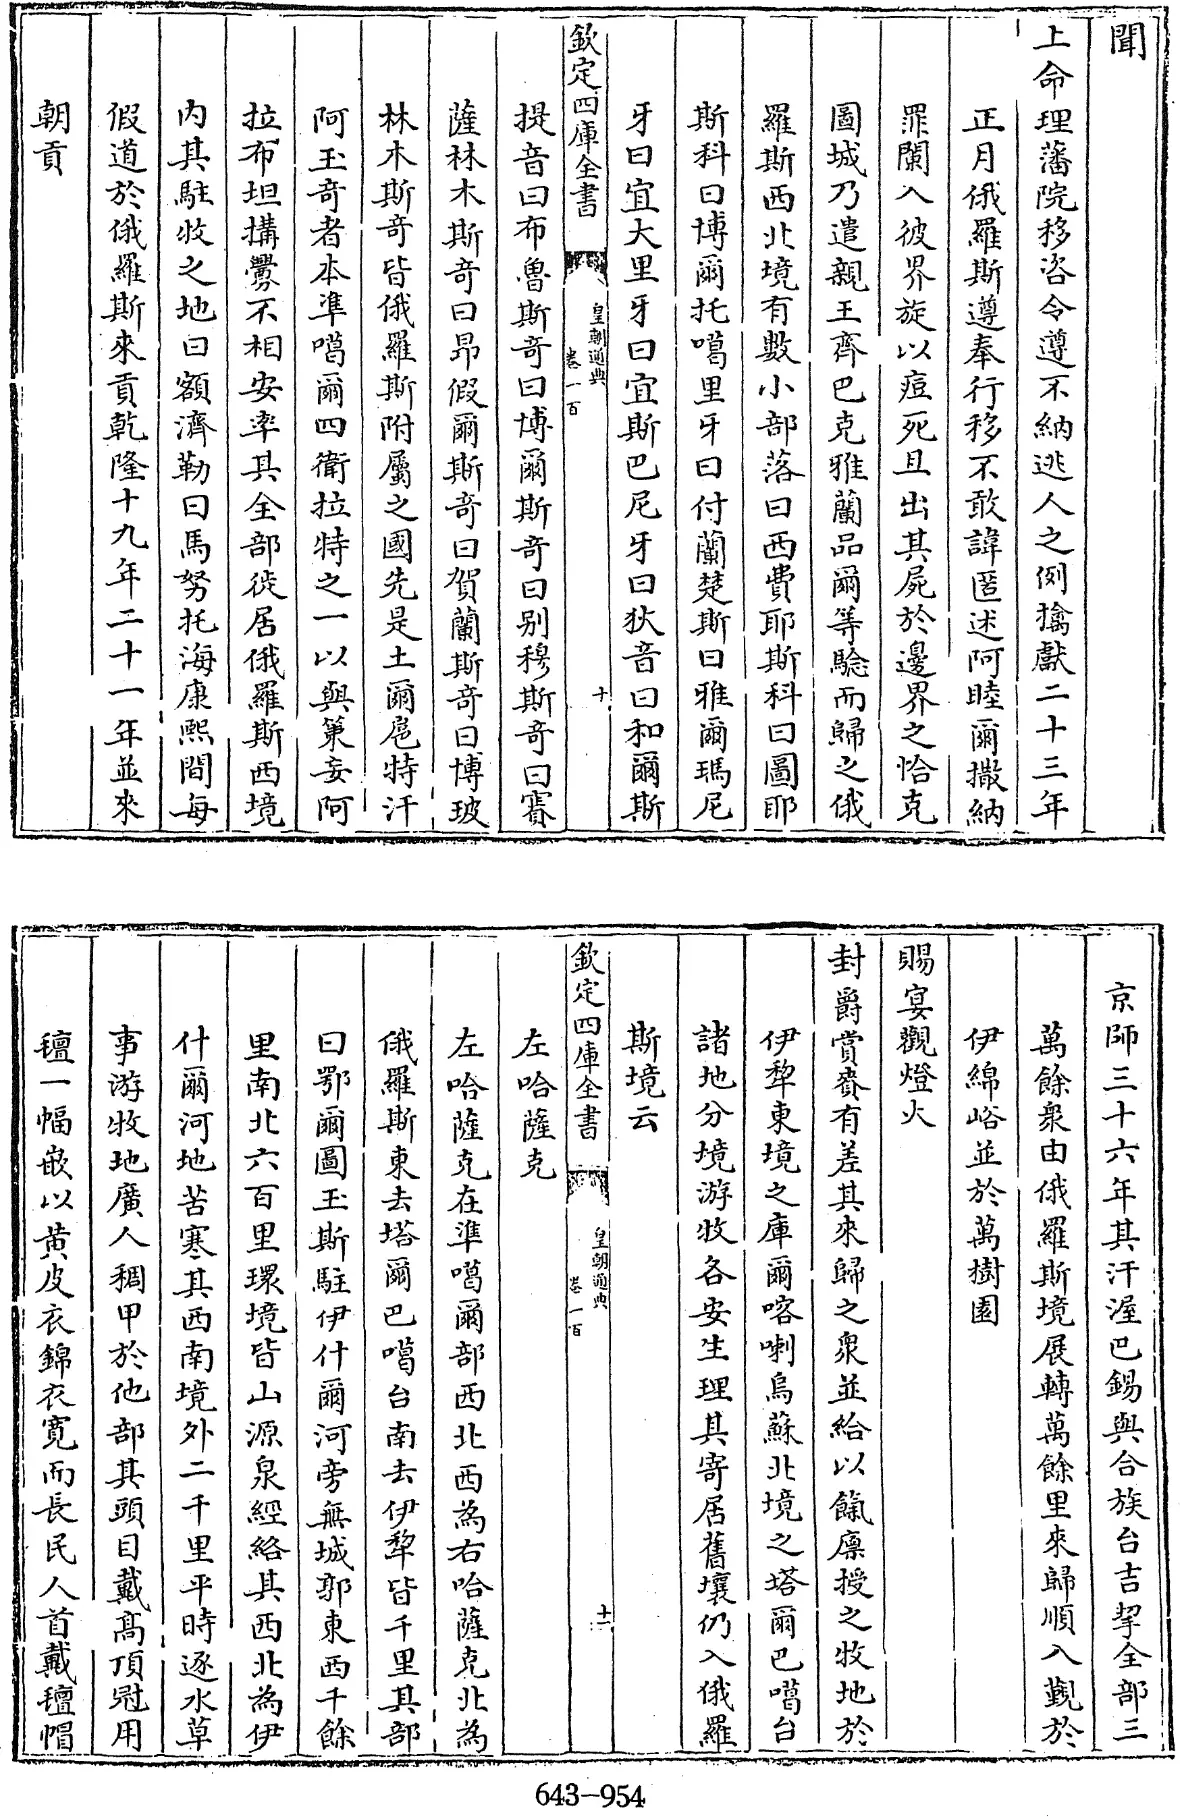 聞
上命理藩院移咨令遵不納逃人之例擒獻二十三年
正月俄羅斯遵奉行移不敢諱匿述阿睦爾撒納
罪闌入彼界旋以痘死且出其屍於邊界之恰克
圖城乃遣親王齊巴克雅蘭品爾等驗而歸之俄
羅斯西北境有數小部落曰西費耶斯科曰圖耶
斯科曰博爾托噶里牙曰付蘭楚斯曰雅爾瑪尼
牙曰宜大里牙曰宜斯巴尼牙曰狄音曰和爾斯
欽定四庫全書
皇朝通典
卷一百
十
提音曰布魯斯奇曰博爾斯奇曰別穆斯奇曰賽
薩林木斯奇曰昂假爾斯奇曰賀蘭斯奇曰博玻
林木斯奇皆俄羅斯附屬之國先是土爾扈特汗
阿玉奇者本準噶爾四衛拉特之一以與策妄阿
拉布坦搆釁不相安率其全部徙居俄羅斯西境
內其駐牧之地曰額濟勒曰馬努托海康熙間每
假道於俄羅斯來貢乾隆十九年二十一年並來
朝貢
京師三十六年其汗渥巴錫與合族台吉挈全部三
萬餘衆由俄羅斯境展轉萬餘里來歸順入覲於
伊綿峪並於萬樹園
賜宴觀燈火
封爵賞賚有差其來歸之衆並給以餼廩授之牧地於
伊犂東境之庫爾喀喇烏蘇北境之塔爾巴噶台
諸地分境游牧各安生理其寄居舊壤仍入俄羅
斯境云
欽定四庫全書
皇朝通典
卷一百
十一
左哈薩克
左哈薩克在準噶爾部西北西為右哈薩克北為
俄羅斯東去塔爾巴噶台南去伊犂皆千里其部
曰鄂爾圖玉斯駐伊什爾河旁無城郭東西千餘
里南北六百里環境皆山源泉經絡其西北為伊
什爾河地苦寒其西南境外二千里平時逐水草
事游牧地廣人稠甲於他部其頭目戴高頂冠用
氊一幅嵌以黄皮衣錦衣寬而長民人首戴氊帽
643-954